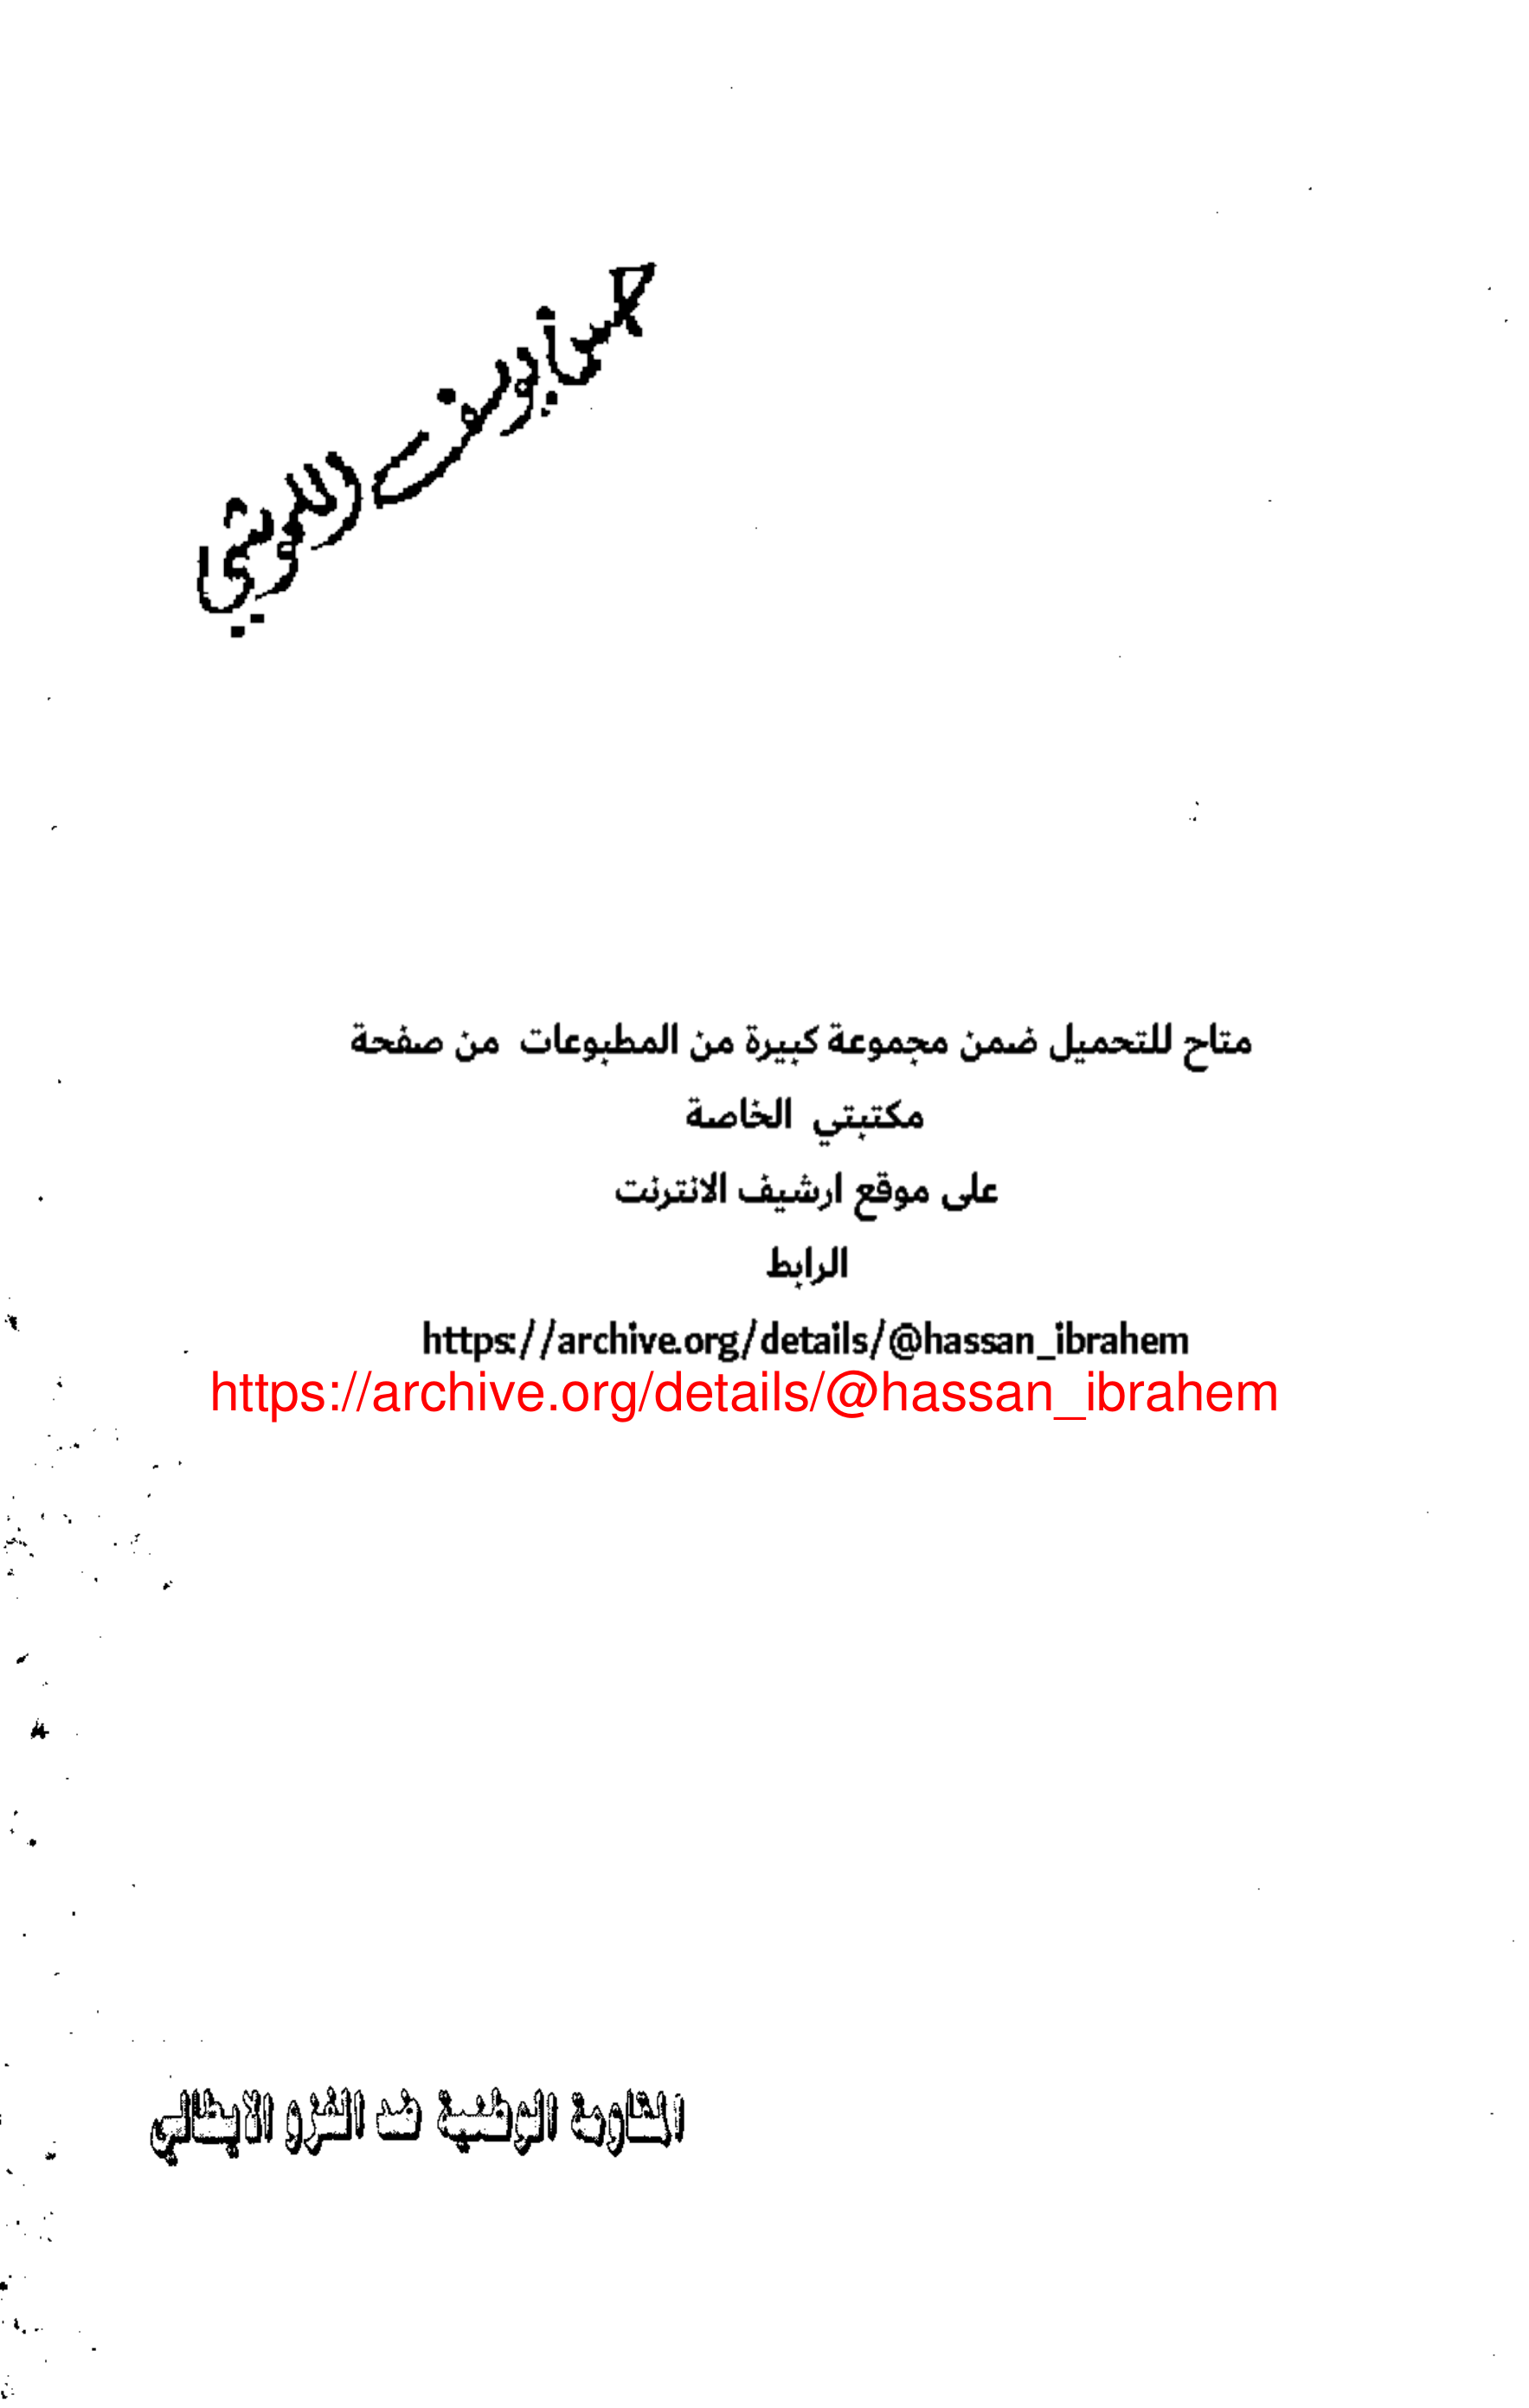 متاح للتحميل ضمن مجموعة كبيرة من المطبوعات من صفحة
مكتبتي الخاصة
على موقع ارشيف الانترنت
الرابط
https://archive.org/details/@hassan_ibrahem
https://archive.org/details/@hassan_ibrahem
المقاومة الوطنية ضد الغزو الايطالي